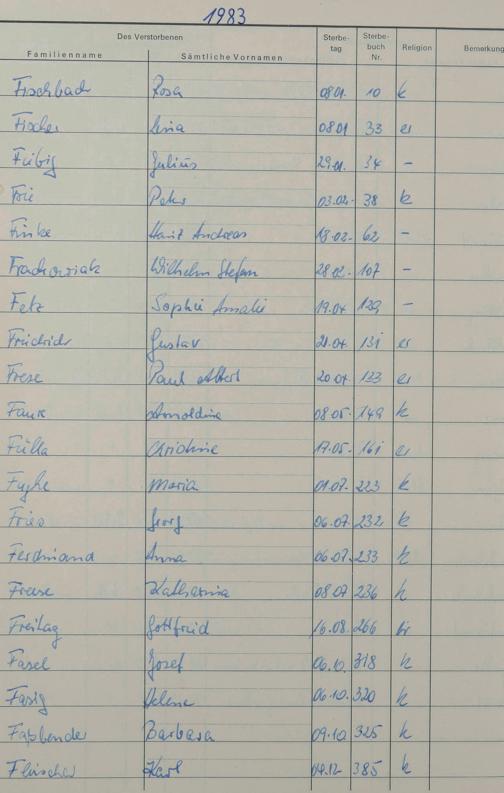 1983
Des Verstorbenen
Familienname Sämtliche Vornamen Sterbe-tag Sterbe-buch Nr. Religion Bemerkung
Fischbach Rosa 08.01. 10 k
Fischer Lina 08.01 33 er
Fiebig Julius 29.01. 34 –
Frie Peter 03.02. 38 k
Finke Hans Andreas 18.02. 62 –
Frackowiak Wilhelm Stefan 28.02. 107 –
Fetz Sophie Amalie 19.04 129 –
Friedrich Gustav 21.04 131 er
Frese Paul Albert 20.04. 133 er
Faure Arnoldine 08.05. 149 k
Fülla Christine 17.05. 161 er
Maria 01.07. 223 k
Fries Georg 06.07. 232 k
Ferdinand Anna 06.07. 233 k
Freese Katharina 08.07 236 k
Freitag Gottfried 16.08. 266
Fasel Josef 06.10. 318 k
Fasig Helene 06.10. 320 k
Faßbender Barbara 09.10 325 k
Fleischer Karl 04.12. 385 k